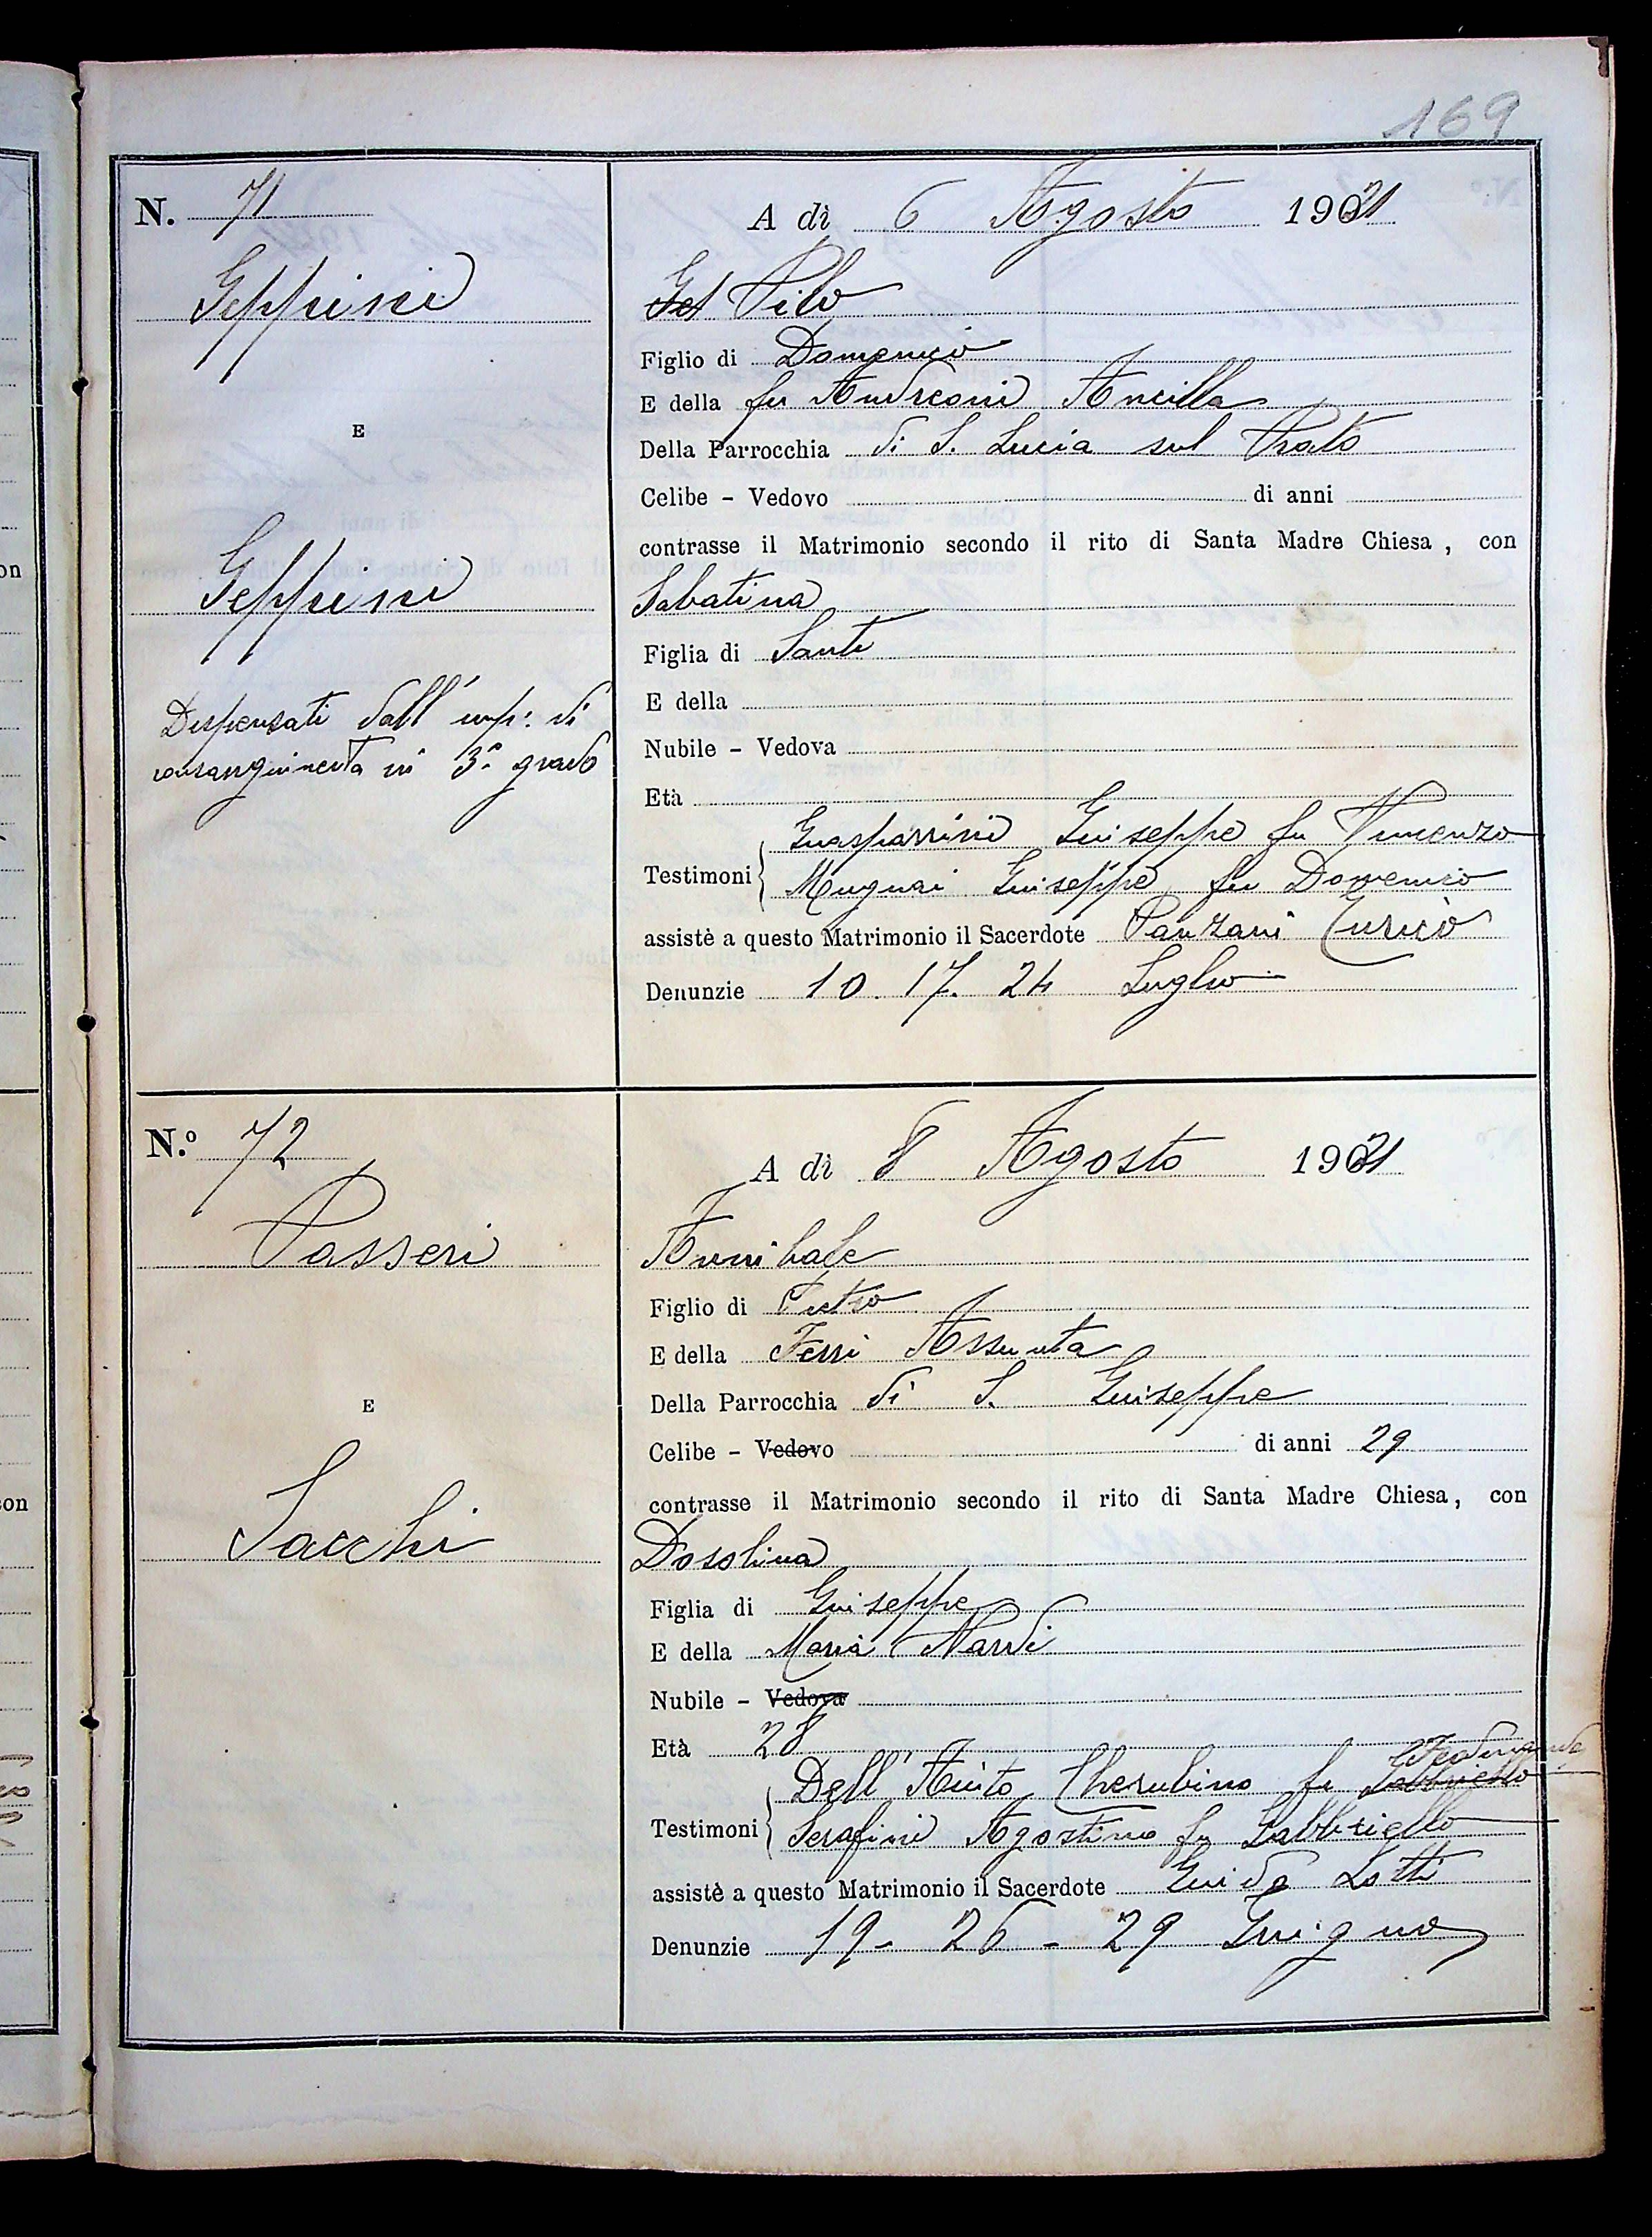 169
N. 71
A dì 6 Agosto 1921
Geppini
Gep Pilo
Figlio di Domenico
E della fu Andreoni Ancilla
E
Della Parrocchia di S. Lucia sul Prato
Celibe - Vedovo di anni
contrasse il Matrimonio secondo il rito di Santa Madre Chiesa, con
Geppini
Sabatina
Figlia di Santi
Dispensati dall' imp: di
consanguineità in 3º grado
E della
Nubile - Vedova
Età
Guasparrini Giuseppe fu Vincenzo
Testimoni
Mugnai Giuseppe fu Domenico
assistè a questo Matrimonio il Sacerdote Panzani Enrico
Denunzie 10. 17. 24 Luglio
N.º 72
A dì 8 Agosto 1921
Passeri
Annibale
Figlio di Pietro
E della Ferri Assunta
E
Della Parrocchia di S. Giuseppe
Celibe - Vedovo di anni 29
contrasse il Matrimonio secondo il rito di Santa Madre Chiesa, con
Sacchi
Dosolina
Figlia di Giuseppe
E della Maria Nardi
Nubile - Vedova
Età 28
Dell' Aiuto Cherubino fu Gabbriello Ferdinando
Testimoni
Serafini Agostino fu Gabbriello
assistè a questo Matrimonio il Sacerdote Guido Lotti
Denunzie 19 - 26 - 29 Giugno